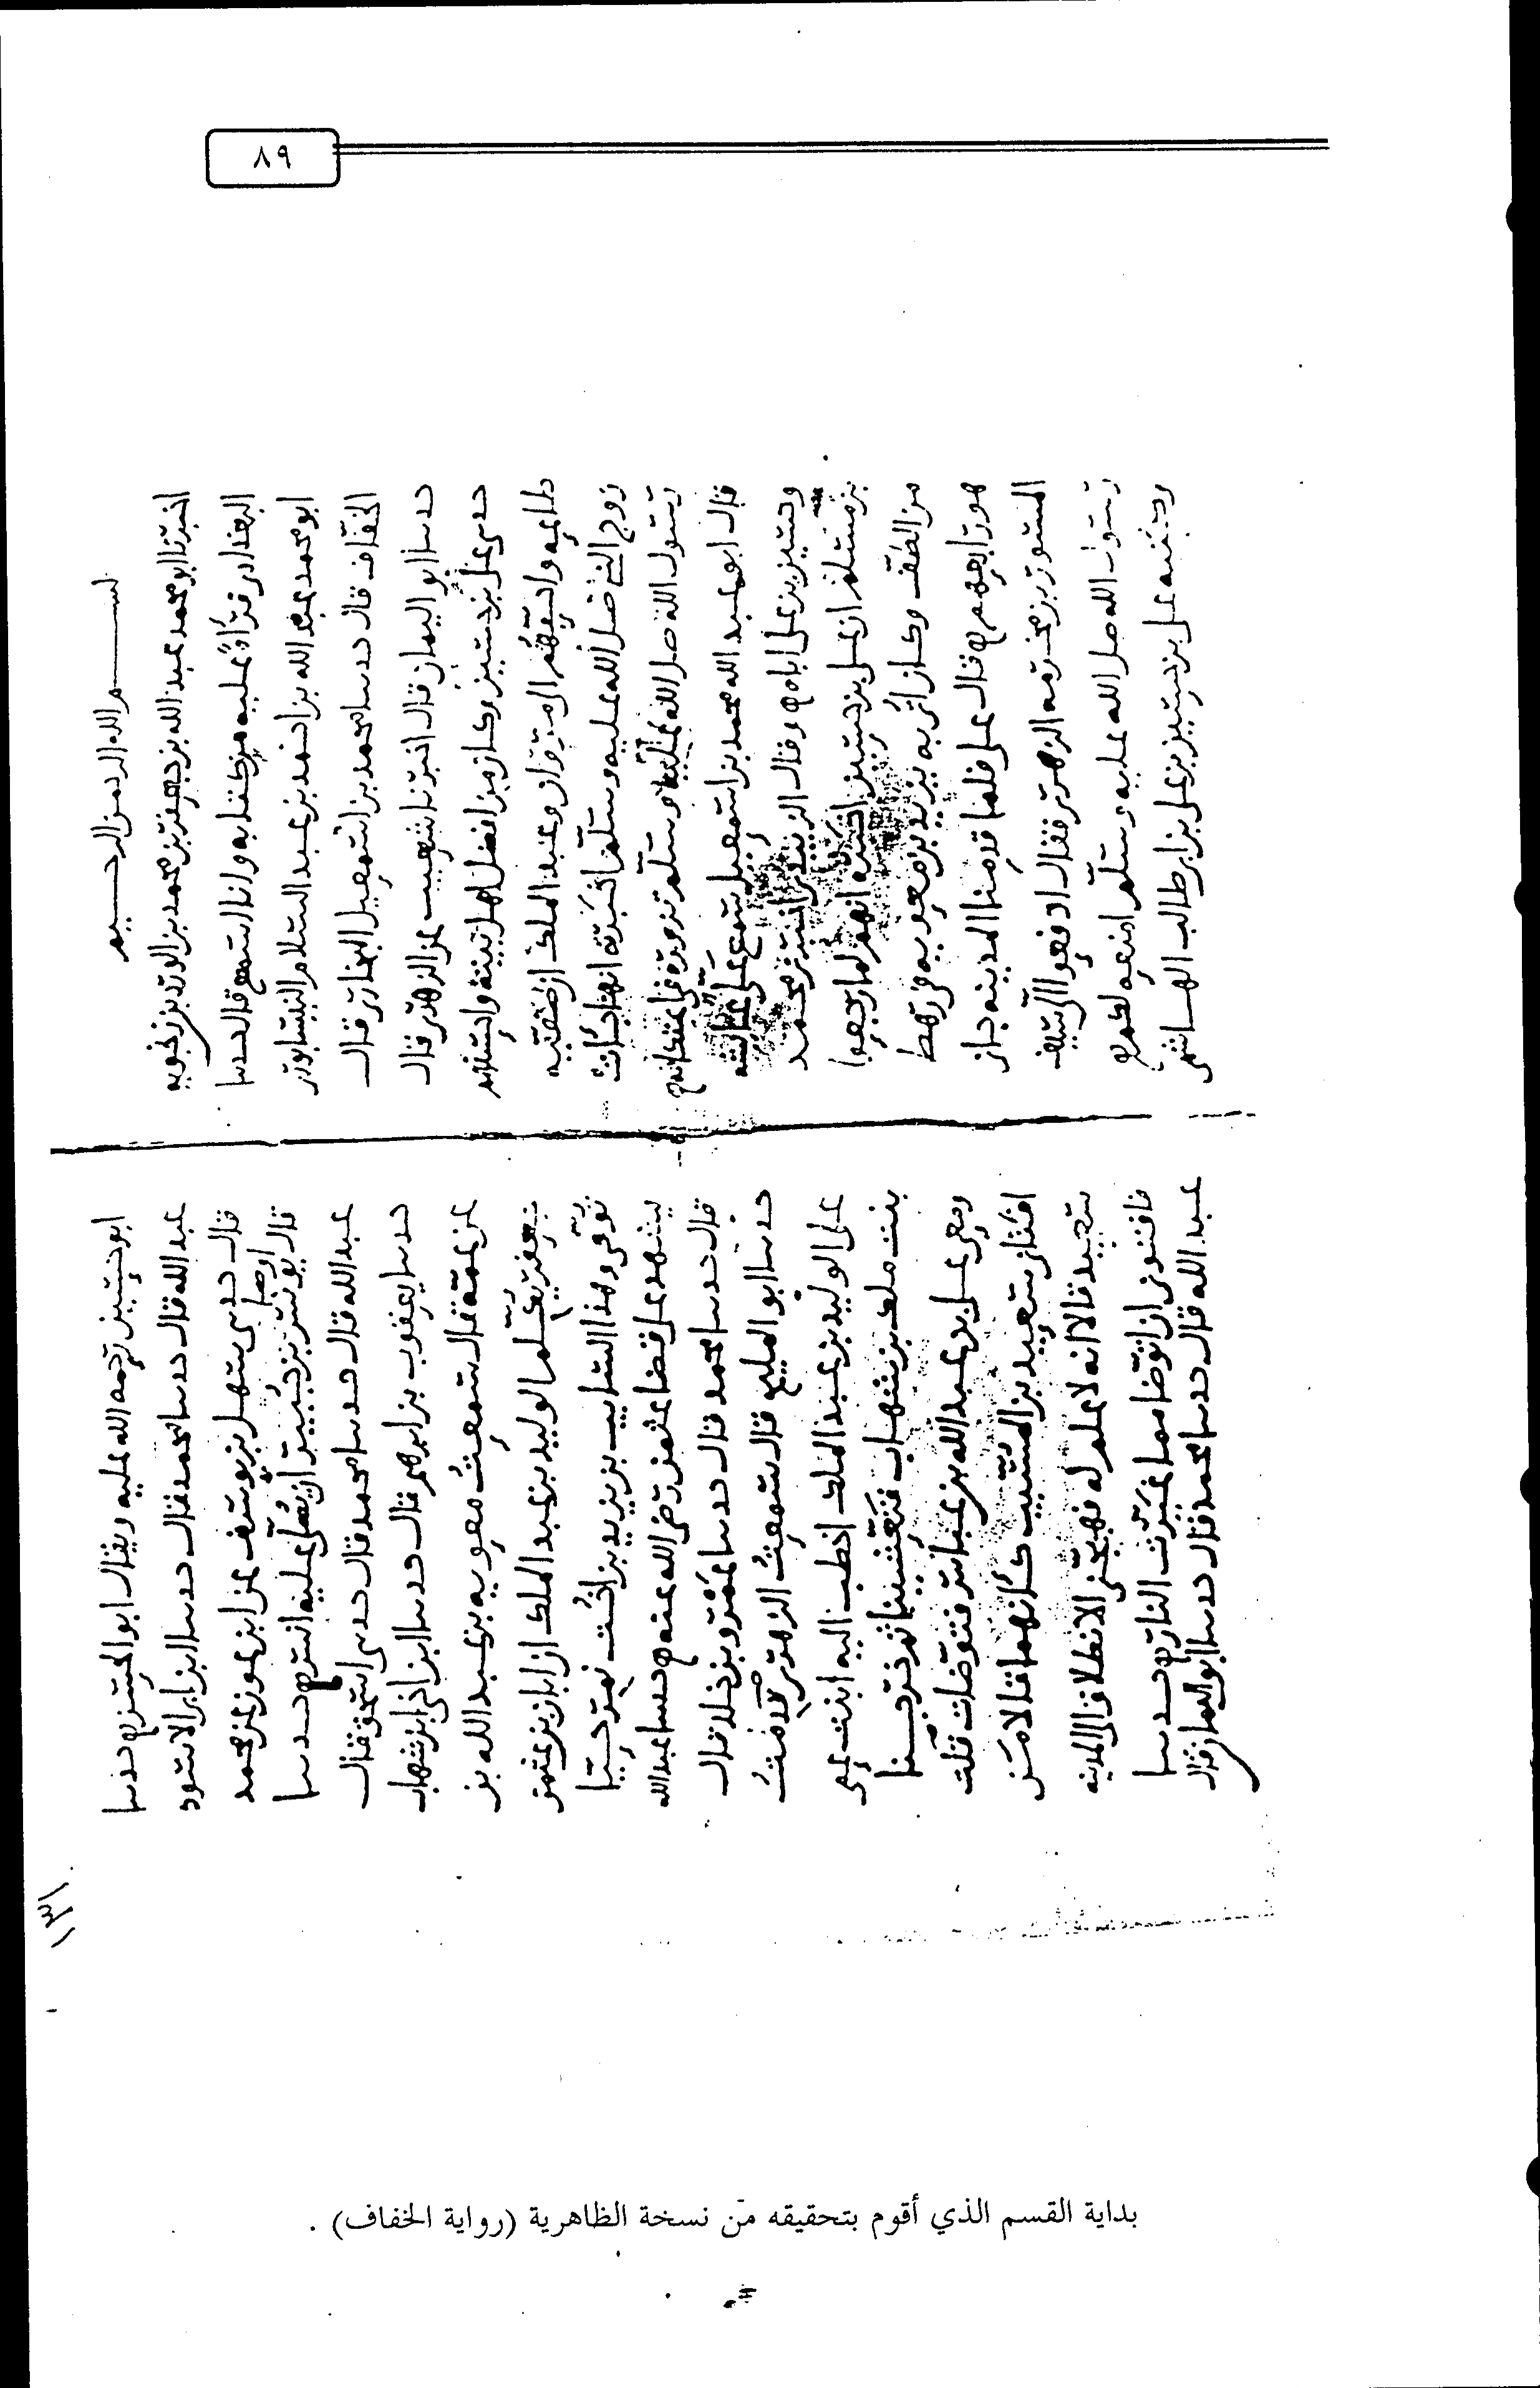 ٨٩
بسم الله الرحمن الرحيم
اخبرنا ابو محمد عبد الله بن جعفر بن محمد بن الورد بن زنجويه
البغدادي قراة عليه من كتابه وانا اسمع قال حدثنا
ابو محمد عبد الله بن احمد بن عبد السلام النيسابوري
الخفاف قال حدثنا محمد بن اسمعيل البخاري قال
حدثنا ابو اليمان قال اخبرنا شعيب عن الزهري قال
حدثني علي بن حسين وكان من افضل اهل بيته واحسنهم
طاعه واحبهم الى مروان وعبد الملك ان صفيه
زوج النبي صلى الله عليه وسلم اخبرته انها جات
رسول الله صلى الله عليه وسلم تزوره في اعتكافه
قال ابو عبد الله محمد بن اسمعيل سمع علي عائشه
وحسين بن علي اباه وقال الزبيدي اخبرني محمد
بن مسلم ان علي بن حسين اخبره انهم لما رجعوا
من الطف وكان اتي به يزيد بن معويه في رهط
هو رابعهم قال علي فلما قدمنا المدينه جاز
المسور بن مخرمه الزهري فقال ادفعوا الي سيف
رسول الله صلى الله عليه وسلم امنعه لكم
وكنيه علي بن حسين بن علي بن ابي طالب الهاشمي
١٣١
ابو حسين رحمه الله عليه ويقال ابو الحسن حدثنا
عبد الله قال حدثنا محمد قال حدثنا ابن ابي الاسود
قال حدثني سهل بن يوسف عن ابن عون عن محمد
قال اوصى يونس بن جبير ان يصلي عليه انس حدثنا
عبد الله قال حدثنا محمد قال حدثني اسحق قال
حدثنا يعقوب بن ابراهيم قال حدثنا ابن اخي ابن شهاب
عن عمه قال سمعت معويه بن عبد الله بن
جعفر يكلم الوليد بن عبد الملك ان ابان بن عثمن
توفي وهذا السايب بن يزيد بن اخت نمر حيا
يشهد على قضا عثمن رضي الله عنه حدثنا عبد الله
قال حدثنا محمد قال حدثنا عمرو بن خلد قال
حدثنا ابو المليح قال سمعت الزهري قال قدمت
على الوليد بن عبد الملك اخطب اليه ابنت عمي
بنت ملك بن شهاب فتعشينا ثم خرجنا
ومعي علي بن عبد الله بن عباس فتوضات قلت
افتاني سعيد بن المسيب كانهما قالا من
سعيد قالا انه لا علم له فهيجني الانطلاق الى المدينه
فافتوني ان اتوضا مما غيرت النار حدثنا
عبد الله قال حدثنا محمد قال حدثنا ابو اليمان قال
بداية القسم الذي أقوم بتحقيقه من نسخة الظاهرية (رواية الخفاف) .